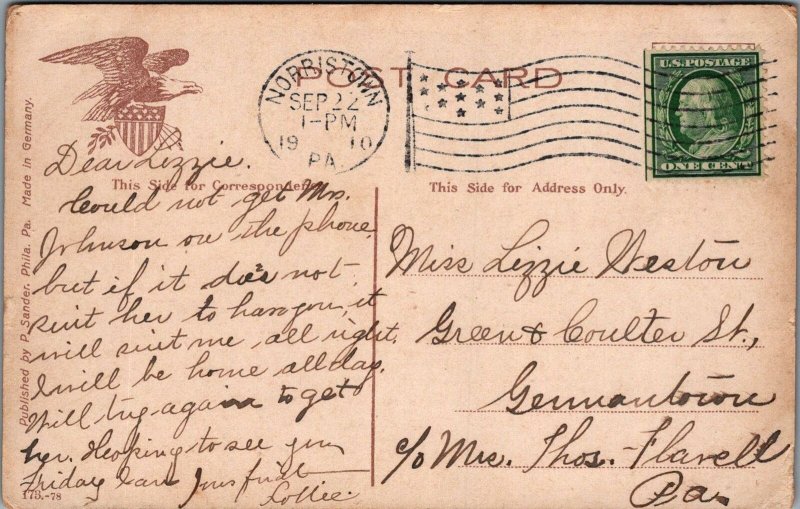 POST CARD
NORRISTOWN
SEP 22
1-PM
1910
PA.
U.S. POSTAGE
ONE CENT
This Side for Correspondence
This Side for Address Only.
Published by P. Sander. Phila. Pa. Made in Germany.
Dear Lizzie.
Could not get Mrs.
Johnson on the phone
but if it does not
suit her to have you, it
will suit me, all right,
I will be home all day.
Will try again to get
her. Hoping to see you
Friday I am Your frid
Lottie.
173.-78
Miss Lizzie Weston
Green & Coulter St.,
Germantown
c/o Mrs. Thos. Flavell
Pa.